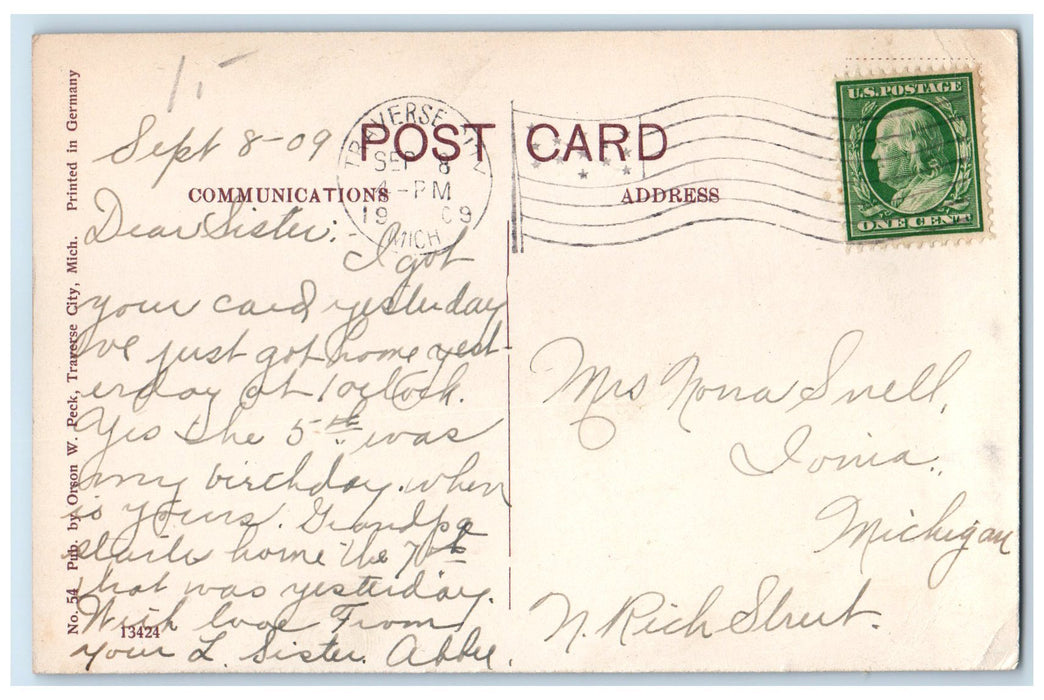 No. 54 Pub. by Orson W. Peck, Traverse City, Mich. Printed in Germany
POST CARD
COMMUNICATIONS
ADDRESS
TRAVERSE CITY
SEP 8
4-PM
1909
MICH
U.S. POSTAGE
ONE CENT
Sept 8-09
Dear Sister:
I got
your card yesterday
I've just got home yest-
erday at 1 oclock.
Yes the 5th was
my birthday. when
is yours. Grandpa
starts home the 7th
that was yesterday.
With love From
your L. Sister. Abbie.
13424
Mrs Nona Snell,
Ionia.
Michigan
N. Rich Street.